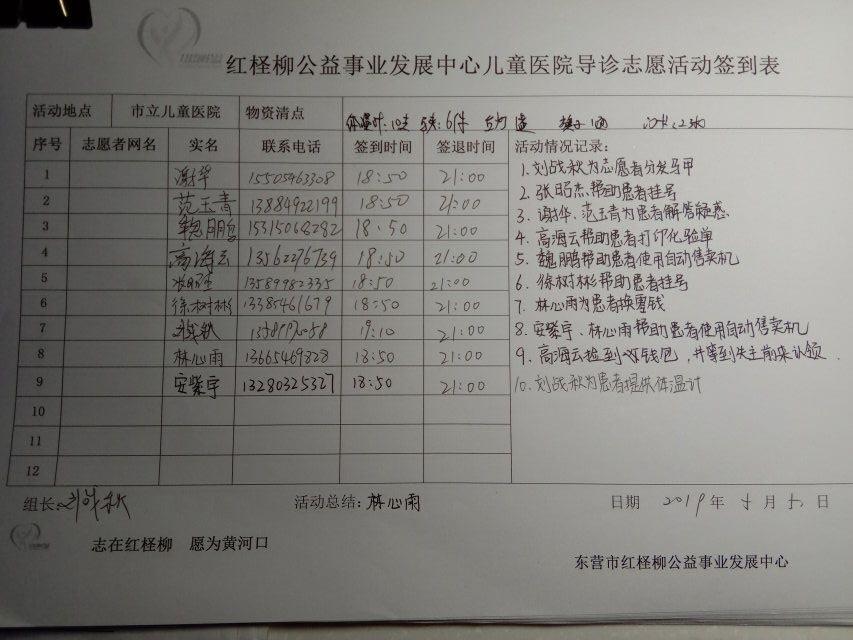 红柽柳公益事业发展中心儿童医院导诊志愿活动签到表
活动地点 市立儿童医院 物资清点 体温计:10支
序号 志愿者网名 实名 联系电话 签到时间 签退时间 活动情况记录:
1 谢华 15505463308 18:50 21:00 1.刘战秋为志愿者分发马甲
2 范玉青 13884922199 18:50 21:00 2.张昭杰帮助患者挂号
3 魏鹏 15315068282 18:50 21:00 3.谢华、范玉青为患者解答疑惑
4 高海云 13562276739 18:50 21:00 4.高海云帮助患者打印化验单
5 13589982335 18:50 21:00 5.魏鹏帮助患者使用自动售卖机
6 徐树彬 13385461679 18:50 21:00 6.徐树彬帮助患者挂号
7 19:10 21:00 7.林心雨为患者换零钱
8 林心雨 13665469328 18:50 21:00 8.安紫宇、林心雨帮助患者使用自动售卖机
9 安紫宇 13280325327 18:50 21:00 9.高海云捡到钱包,并等到失主前来认领.
10 10.刘战秋为患者提供体温计
11
12
组长:刘战秋 活动总结:林心雨 日期 2019年 月 日
志在红柽柳 愿为黄河口
东营市红柽柳公益事业发展中心